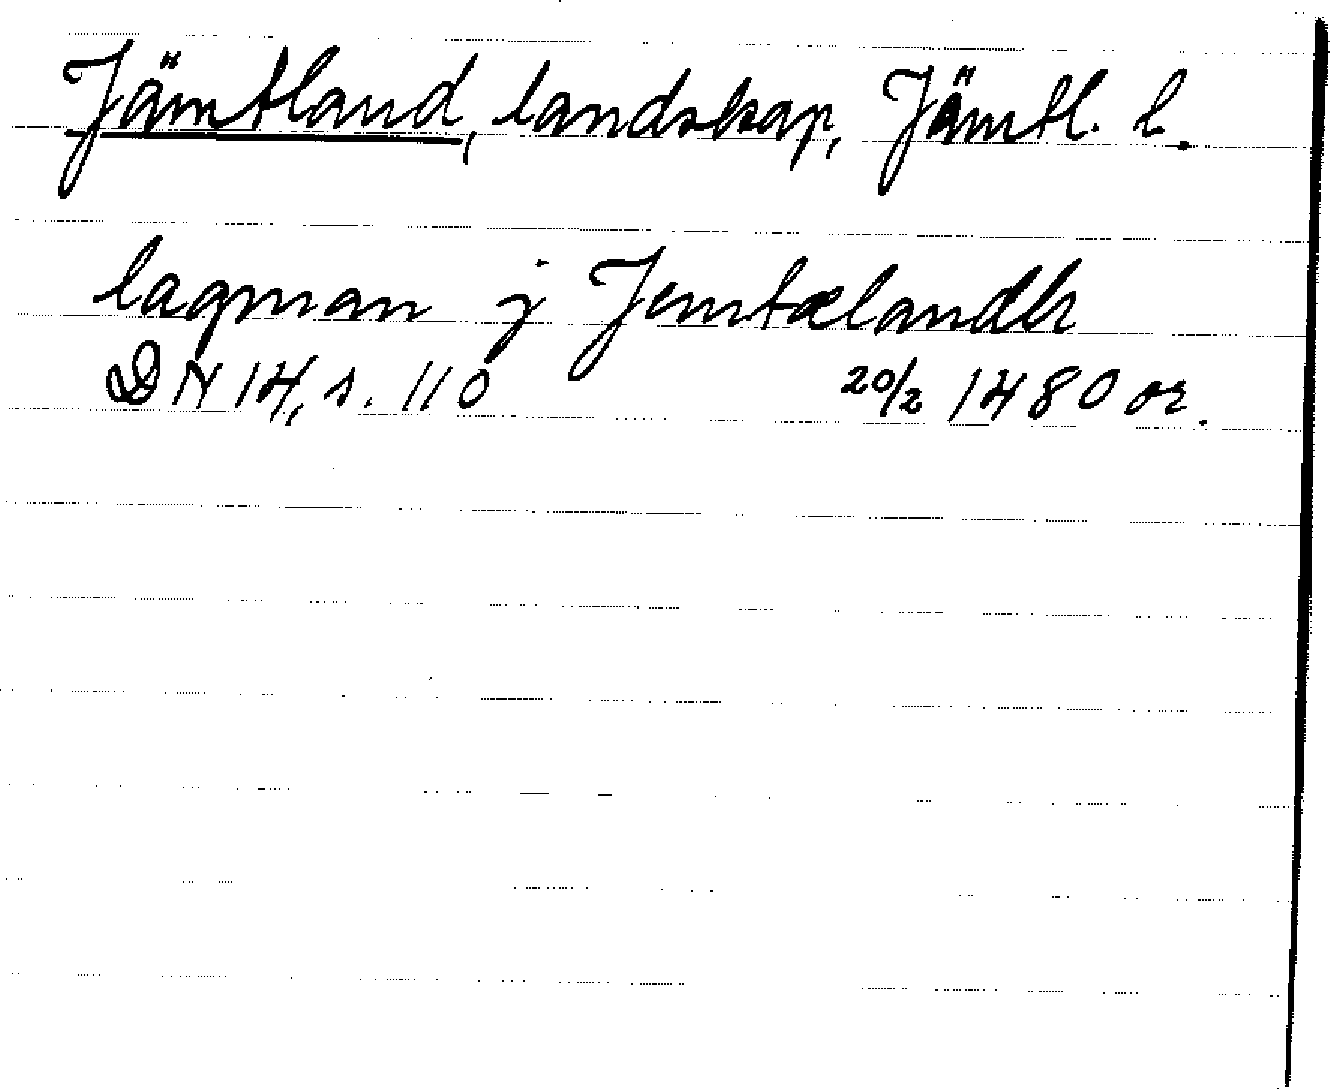 Jämtland, landskap, Jämtl. l.
lagman j Jemtælandh
DN 14, s. 110 20/2 1480 or.